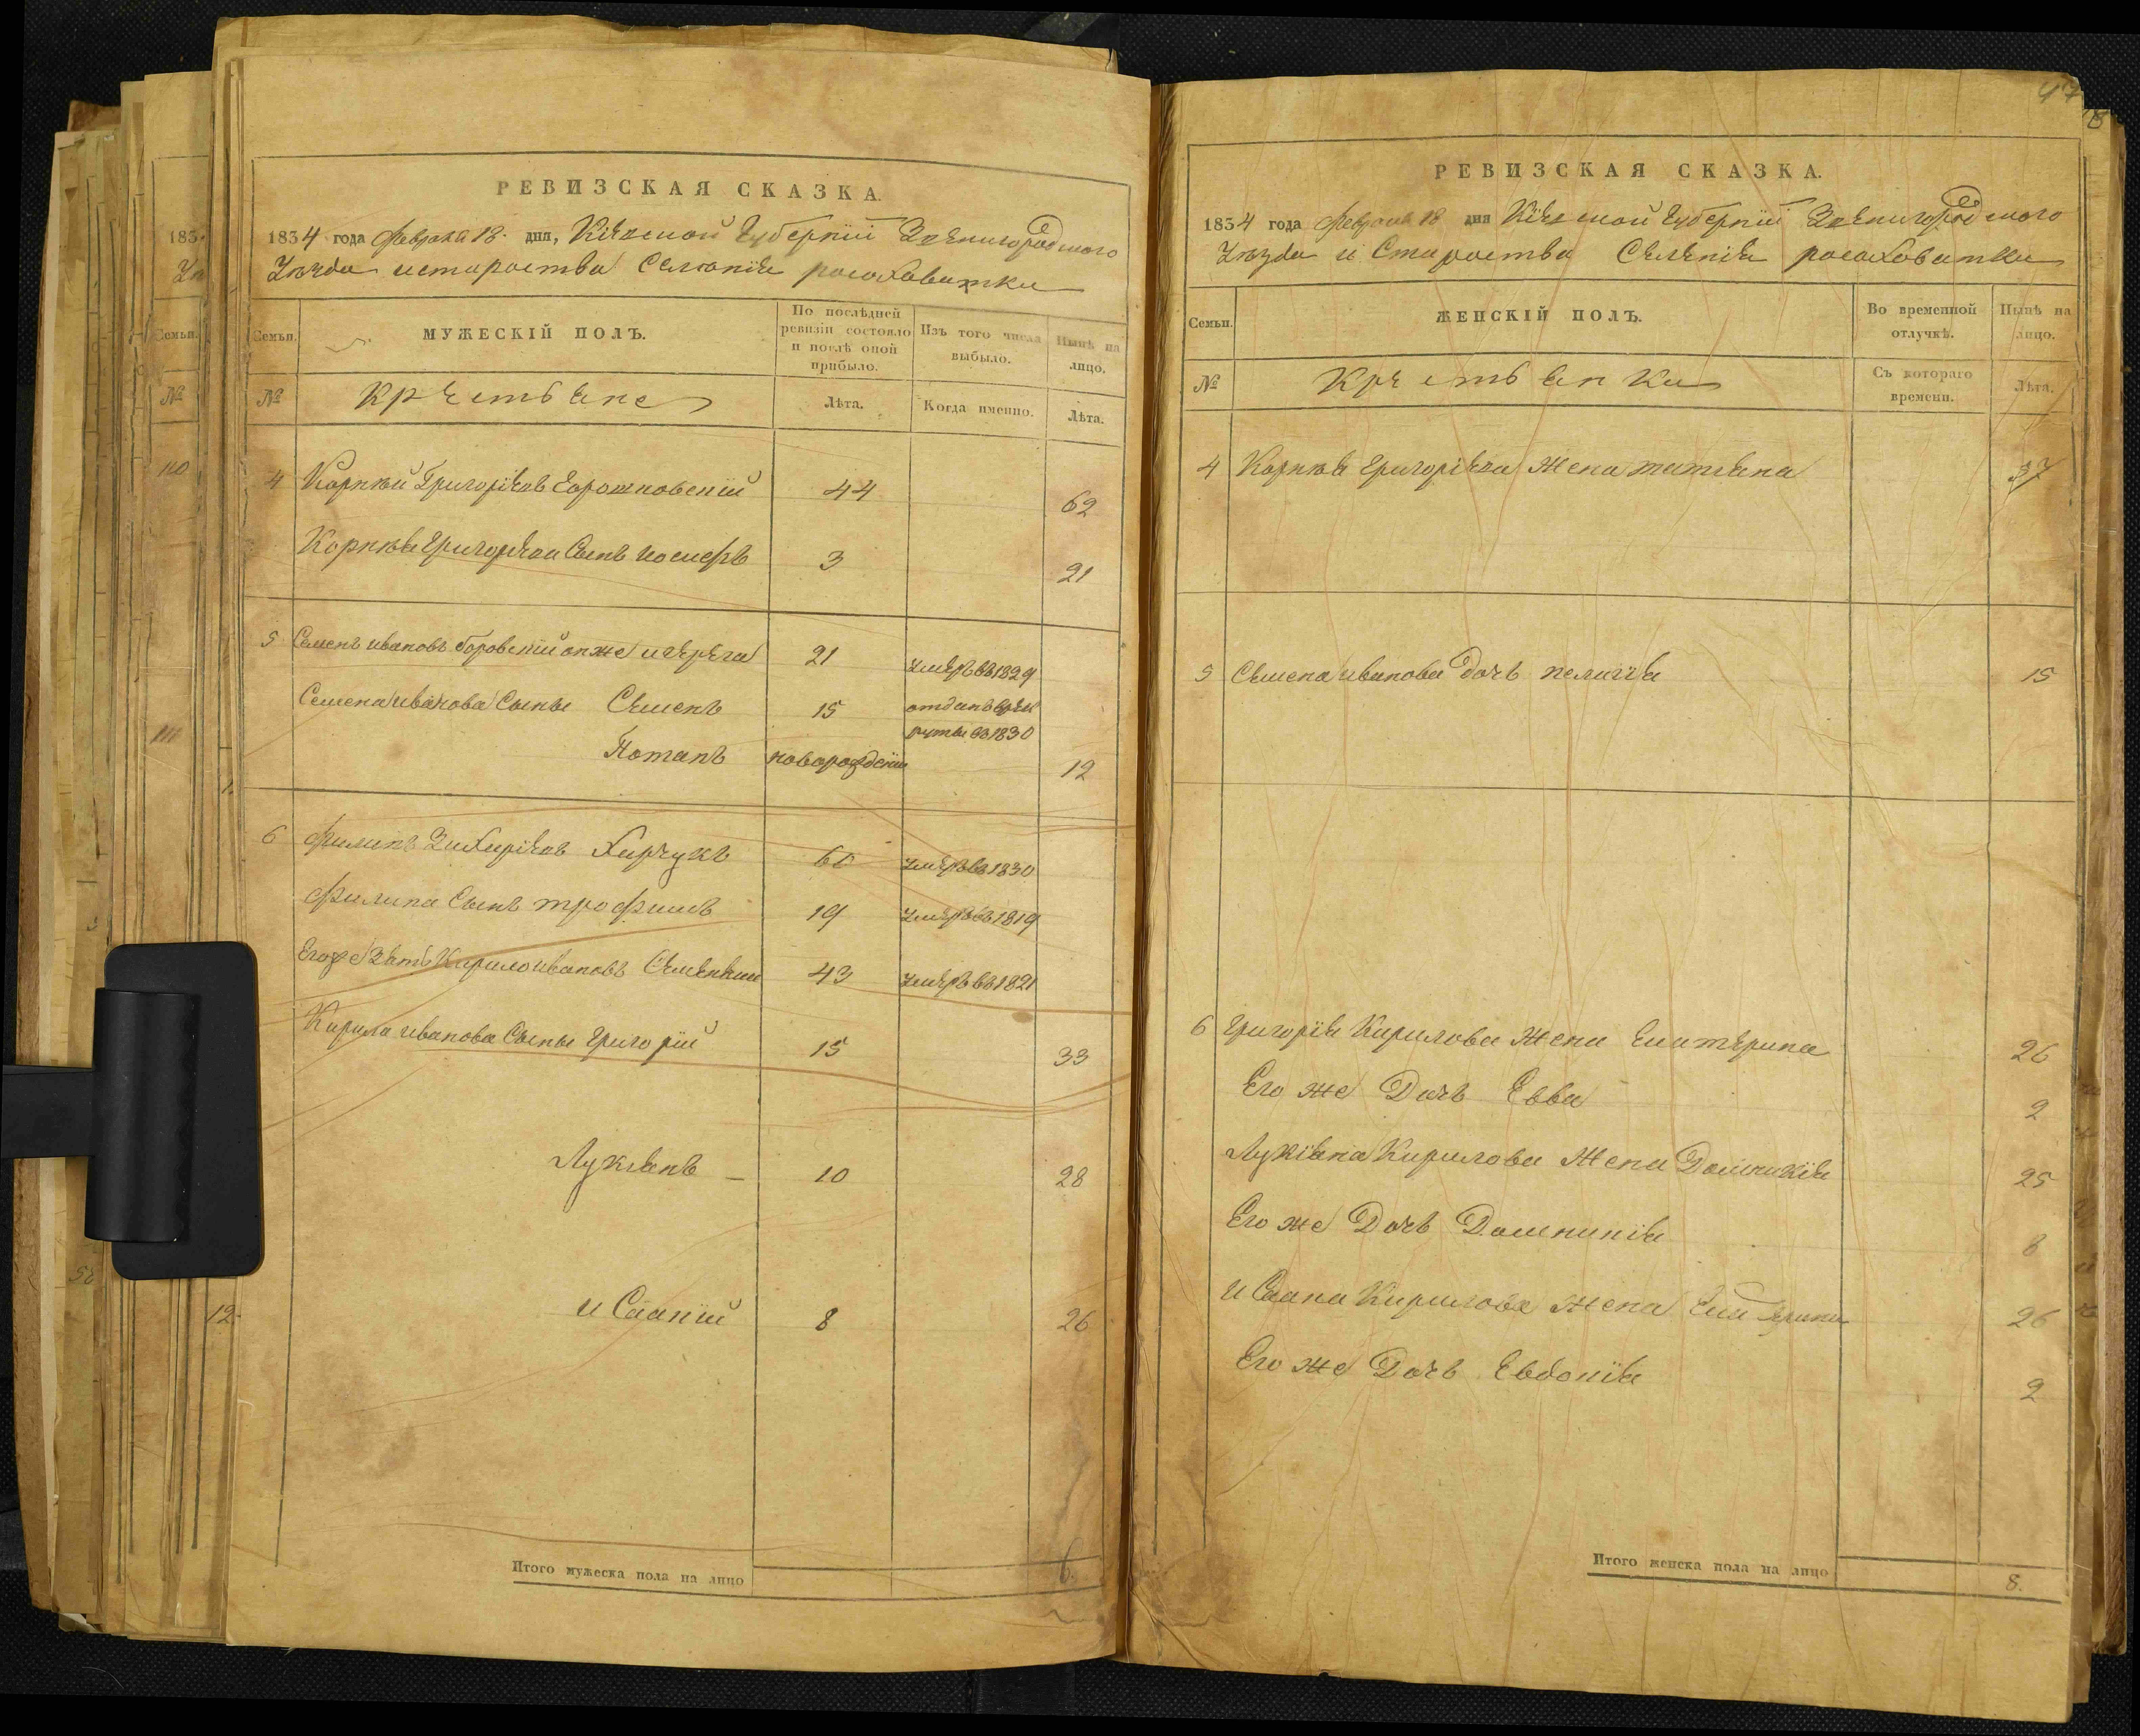 РЕВИЗСКАЯ СКАЗКА.
1834 года февраля 18 дня, Кіевской Губерніи Звенигородского
Уезда и староства Селенія росоховатки
Семьи.
МУЖЕСКІЙ ПОЛЪ.
По послѣдней ревизіи состояло и послѣ оной прибыло.
Изъ того числа выбыло.
Нынѣ на лицо.
№
Крестьяне
Лѣта.
Когда именно.
Лѣта.
4 Корнѣй Григоріевъ 44 62
Корнѣя Григорієва Сынъ иосифъ 3 21
5 Семенъ ивановъ боровскій онже 21 умеръ въ 1829
Семена иванова Сыны Семенъ 15 отданъ въ рек
руты въ 1830
Потапъ новорожденій 12
6 филипъ Захаріевъ Харчукъ 60 умеръ въ 1830
Филипа Сынъ трофимъ 19 умеръ въ 1819
Егоже Зять Кирило ивановъ 43 умеръ въ 1821
Кирила иванова Сыны Григорій 15 33
Лукіянъ 10 28
и Саапій 8 26
Итого мужеска пола на лицо 6.
47
РЕВИЗСКАЯ СКАЗКА.
1834 года февраля 18 дня Кіевской Губерніи Звенигородского
Уезда и Староства Селенія росоховатки
Семьи.
ЖЕНСКІЙ ПОЛЪ.
Во временной отлучкѣ.
Нынѣ на лицо.
№
Крестьянки
Съ котораго времени.
Лѣта.
4 Корнѣя Григорієва Жена татіяна 37
5 Семена иванова Дочь пелагія 15
6 Григорія Кирилова Жена Екатерина 26
Его же Дочь Евва 2
Лукіяна Кирилова Жена Домникія 25
Его же Дочь Домникія 8
И Саапа Кирилова Жена Екатерина 26
Его же Дочь Евдокія 2
Итого женска пола на лицо 8.